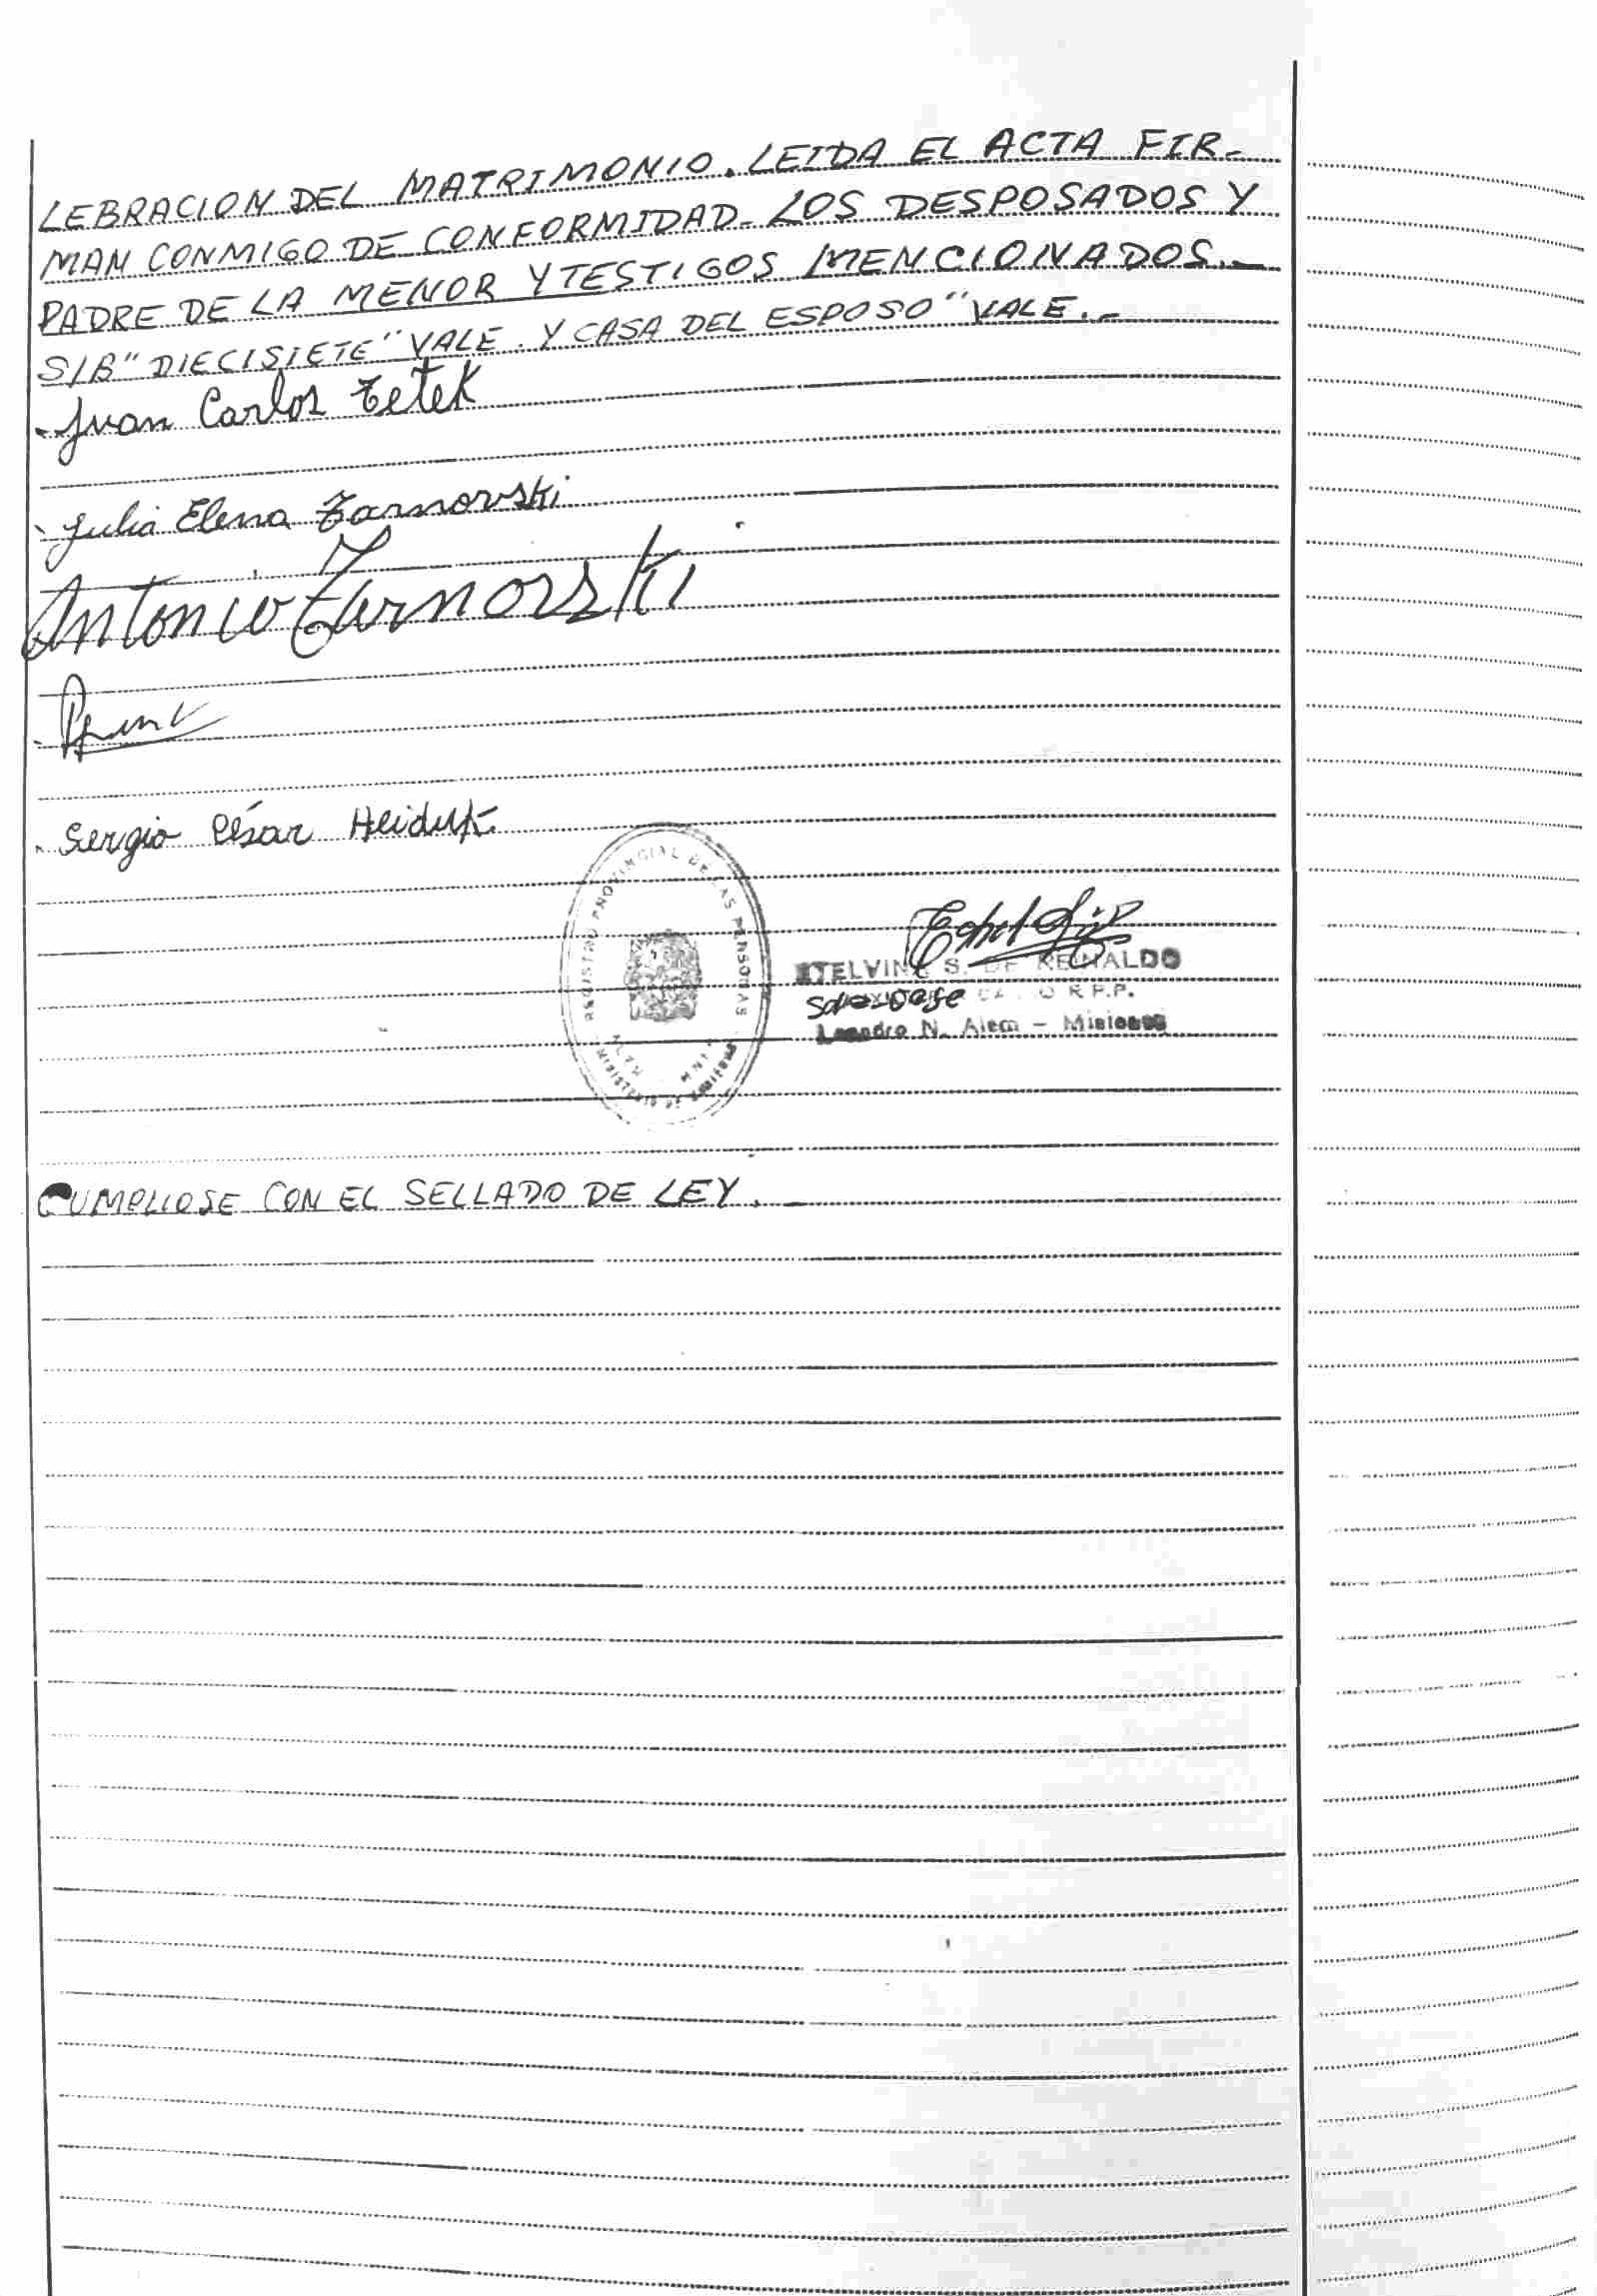 LEBRACION DEL MATRIMONIO. LEIDA EL ACTA FIR-
MAN CONMIGO DE CONFORMIDAD- LOS DESPOSADOS Y
PADRE DE LA MENOR Y TESTIGOS MENCIONADOS.-
S/B "DIECISIETE" VALE. Y CASA DEL ESPOSO "VALE.-
Juan Carlos Zetek
Julia Elena Zarnovski
Antonio Zarnovski
Sergio César Heiduk
REGISTRO PROVINCIAL DE LAS PERSONAS
ETELVINA S. DE REINALDO
R.P.P.
Leandro N. Alem - Misiones
CUMPLIOSE CON EL SELLADO DE LEY.-